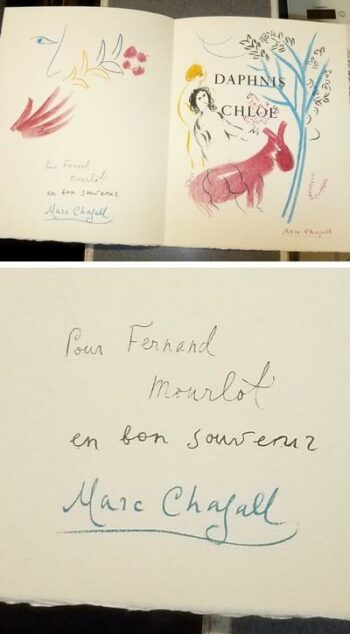 Pour Fernand
Mourlot
en bon souvenir
Marc Chagall
DAPHNIS
CHLOÉ
Marc Chagall
Pour Fernand
Mourlot
en bon souvenir
Marc Chagall